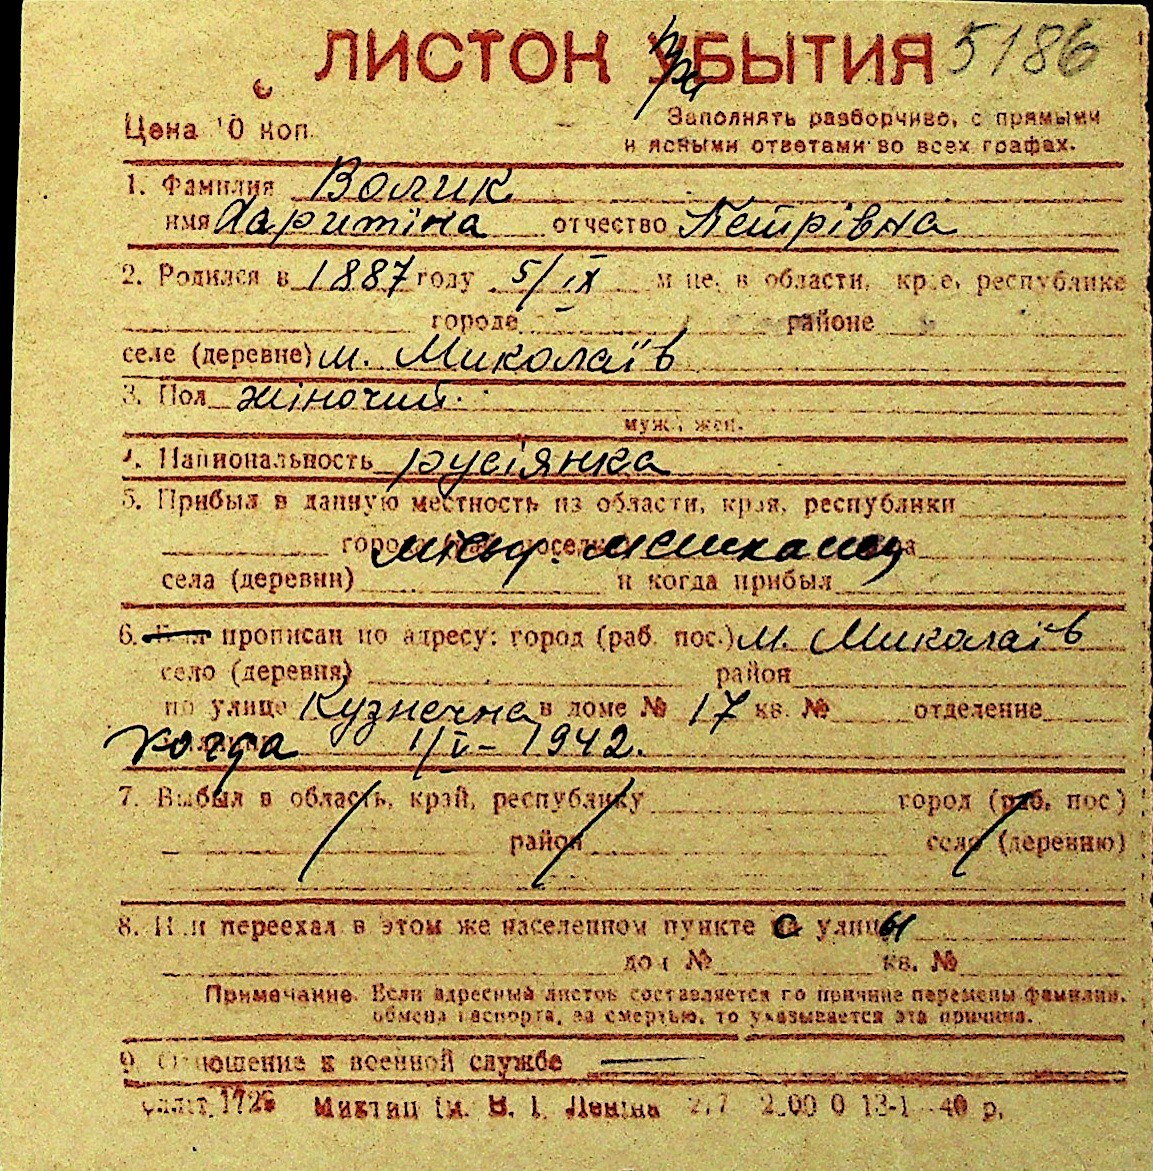 ЛИСТОК УБЫТИЯ 5186
при
Цена 10 коп.
Заполнять разборчиво, с прямыми
и ясными ответами во всех графах.
1. Фамилия Волик
имя Харитіна отчество Петрівна
2. Родился в 1887 году 5/IX м-це, в области, крае, республике
городе районе
селе (деревне) м. Миколаїв
3. Пол жіночий.
муж., жен.
4. Национальность русіянка
5. Прибыл в данную местность из области, края, республики
города
села (деревни) и когда прибыл
6. прописан по адресу: город (раб. пос.) м. Миколаїв
село (деревня) район
по улице Кузнечна в доме № 17 кв. № отделение
когда 1/V – 1942.
7. Выбыл в область, край, республику город (раб. пос.)
район село (деревню)
8. Или переехал в этом же населенном пункте с улицы
дом № кв. №
Примечание. Если адресный листок составляется по причине перемены фамилии,
обмена паспорта, за смертью, то указывается эта причина.
9. Отношение к военной службе
1729 Миктип ім. В. І. Леніна 13-1 40 р.